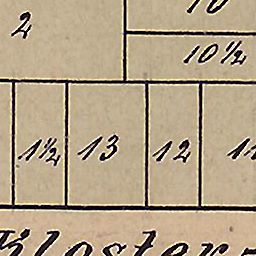 10
2
10½
1½ 13 12 11
Kloster-